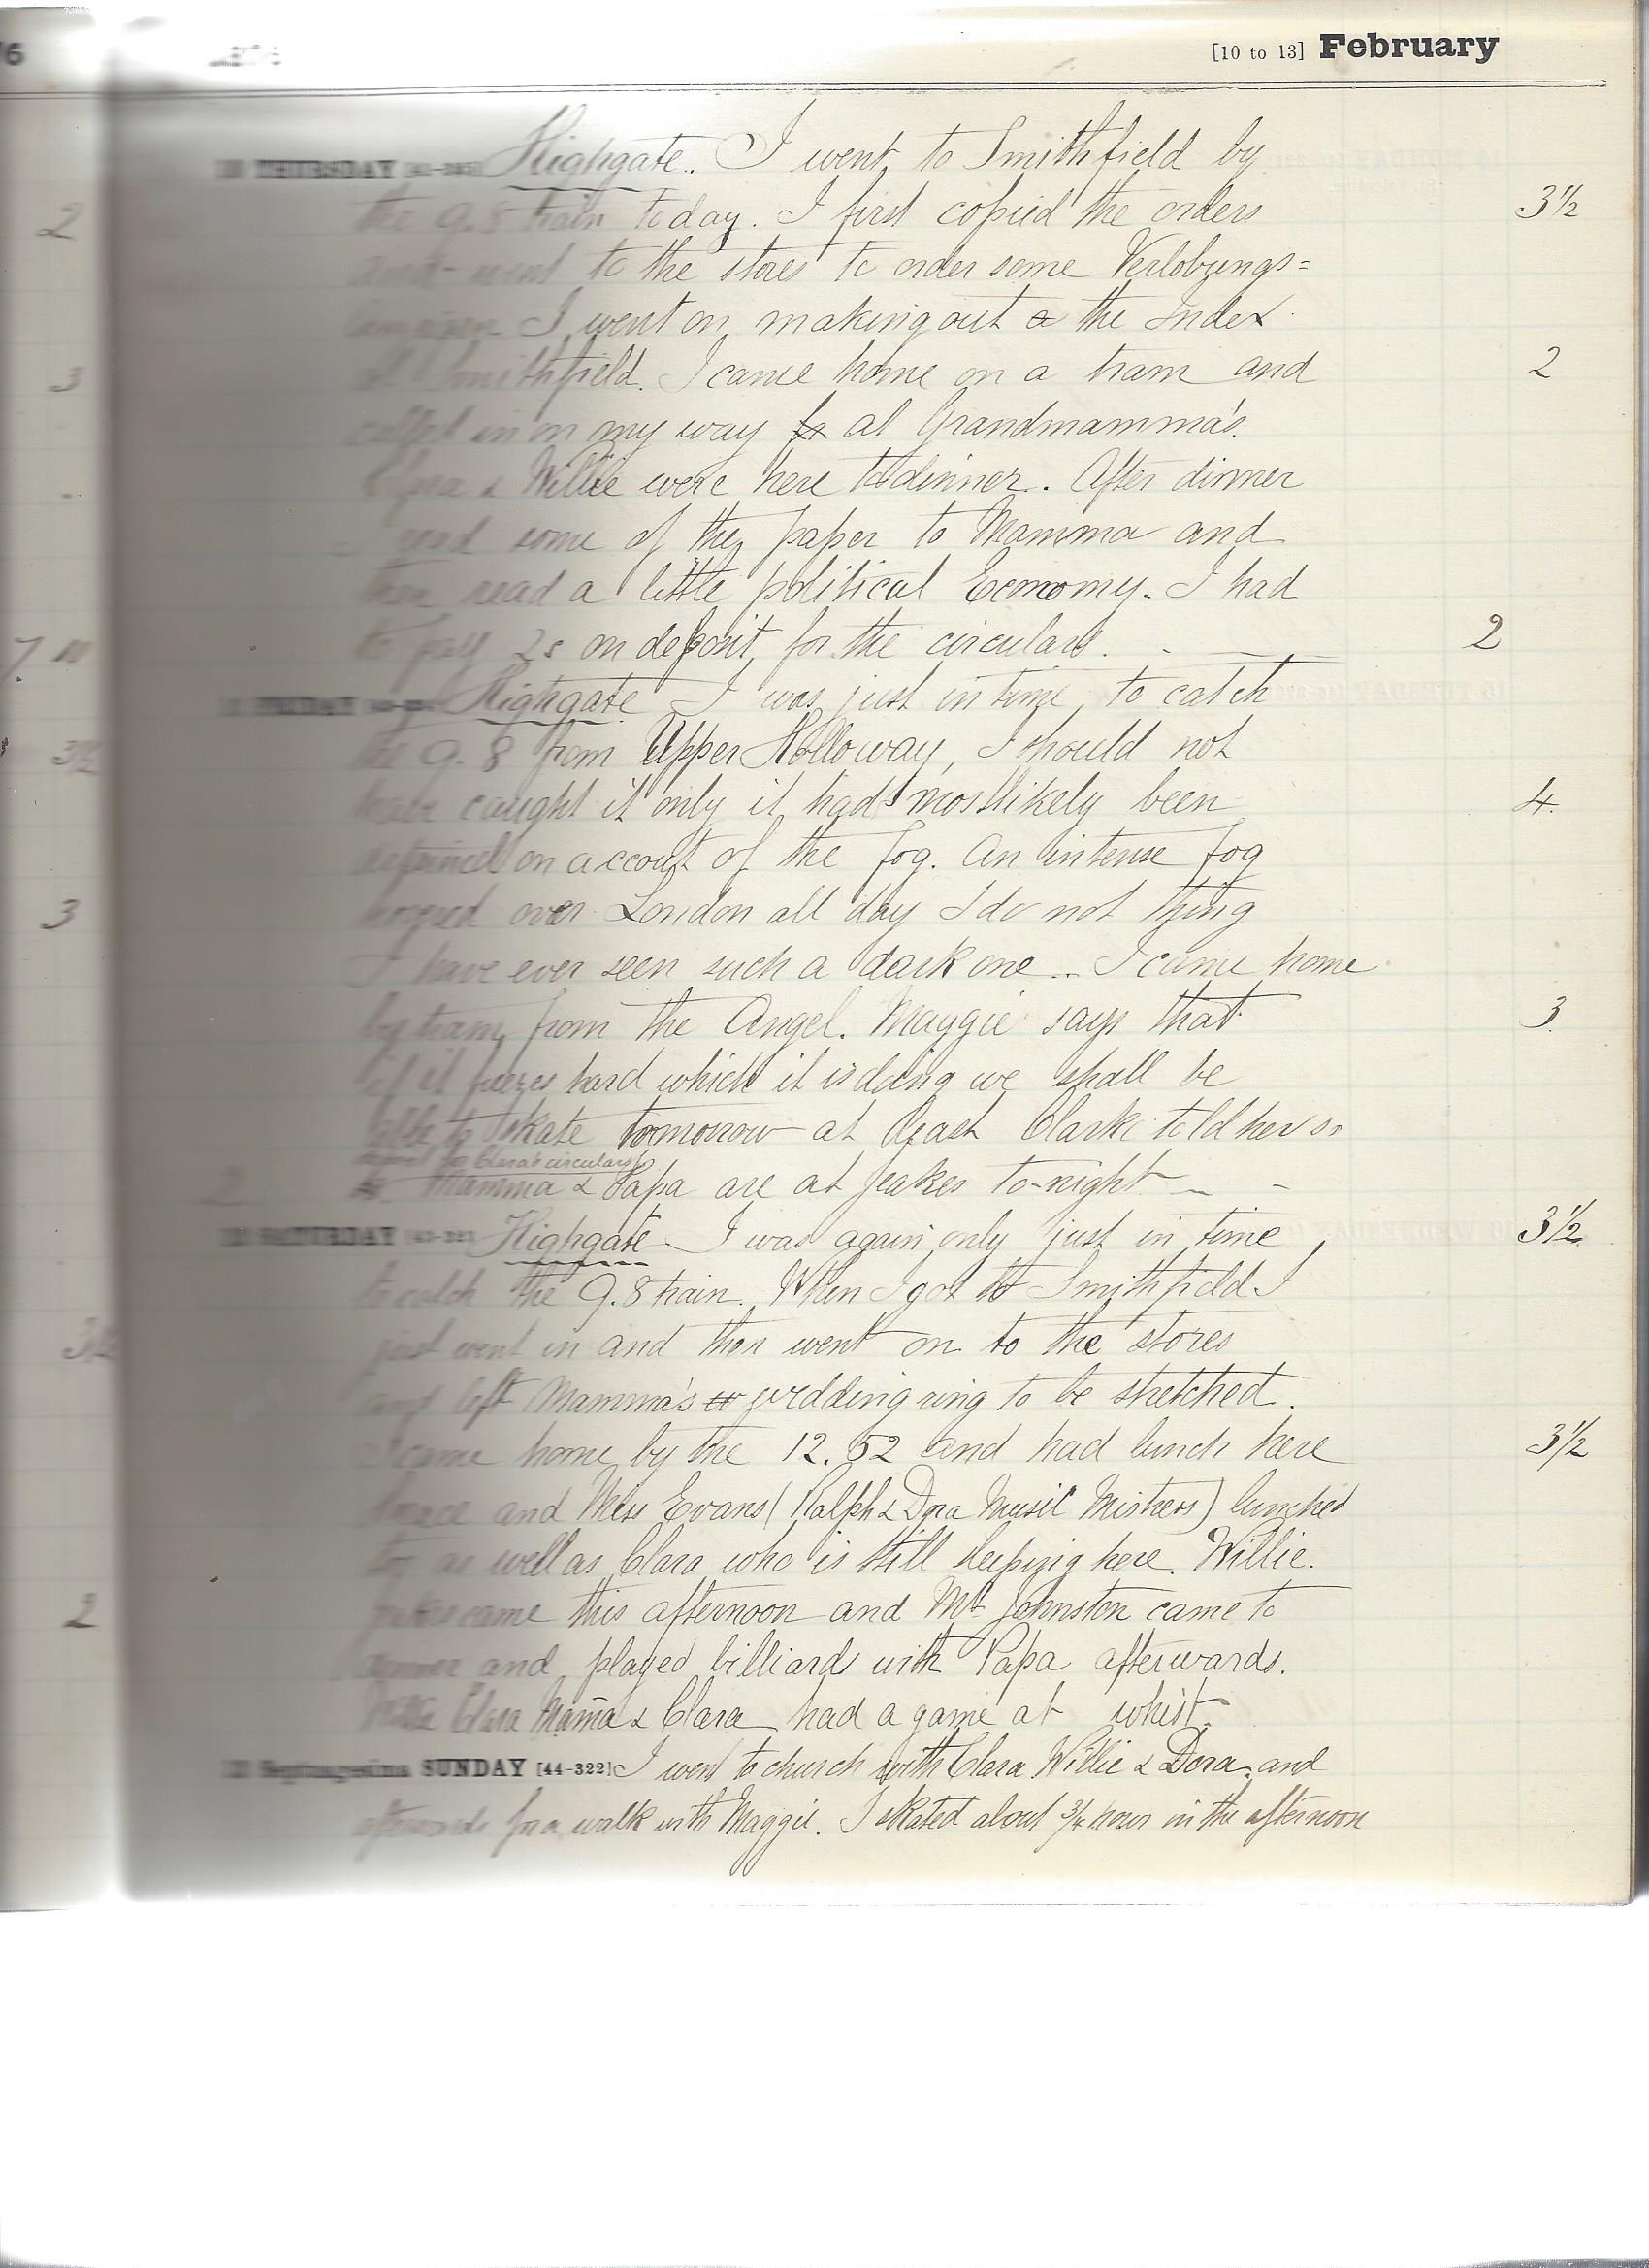 [10 to 13] February
THURSDAY Highgate. I went to Smithfield by
the 9.8 train today. I first copied the orders 3½
and went to the stores to order some Verlobungs=
I went on making out a the Index
at Smithfield. I came home on a tram and 2
called in on my way fr at Grandmamma's.
& Willie were here to dinner. After dinner
read some of the paper to Mamma and
then read a little political Economy. I had
to pay 2s on deposit for the circulars. 2
FRIDAY Highgate I was just in time to catch
the 9.8 from Upper Holloway, I should not
have caught it only it had mostlikely been 4.
on accout of the fog. An intense fog
over London all day I do not thing
I have ever seen such a dark one.. I came home
by tram from the Angel. Maggie says that 3
if it freezes hard which it is doing we shall be
able to skate tomorrow at least Clarke told her so
Clara's circulars
Mamma & Papa are at Jeakes to-night
SATURDAY Highgate I was again only just in time 3½
to catch the 9.8 train. When I got to Smithfield I
just went in and then went on to the stores
and left Mamma's wedding ring to be stretched.
I came home by the 12.52 and had lunch here 3½
and Miss Evans (Ralph & Dora Music Mistress) lunched
too as well as Clara who is still sleeping here. Willie.
came this afternoon and Mr Johnston came to
and played billiards with Papa afterwards.
Willie Clara Mama & Clara had a game at whist
Septuagesima SUNDAY [44-322] I went to church with Clara Willie & Dora. and
afterwards for a walk with Maggie. I skated about ¾ hour in the afternoon